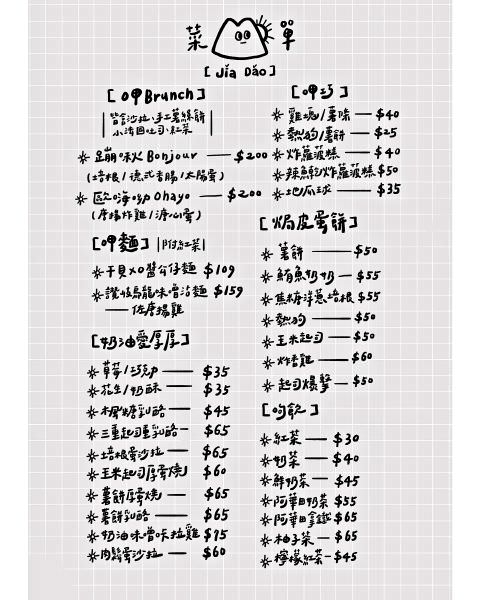 菜 單
[ Jia Dǎo ]
[ 呷Brunch ]
皆含沙拉、手工薯絲餅
小清圓吐司、紅茶
蹦啾 Bonjour — $200
(培根/德式香腸/太陽蛋)
歐嗨喲 Ohayo — $200
(唐揚炸雞/溏心蛋)
[呷麵] |附紅茶|
干貝XO醬公仔麵 $109
讚岐烏龍味噌沾麵 $159
— 佐唐揚雞
[奶油愛厚厚]
草莓/巧克力 — $35
花生/奶酥 — $35
木楓糖乳酪 — $45
三重起司重乳酪 — $65
培根蛋沙拉 — $65
玉米起司厚蛋燒 $60
薯餅厚蛋燒 — $65
薯餅乳酪 — $65
奶油味噌咔拉雞 $75
肉鬆蛋沙拉 — $60
[呷巧]
雞塊/薯條 — $40
熱狗/薯餅 — $25
炸蘿蔔糕 — $40
辣魷/炸蘿蔔糕 $50
地瓜球 — $35
[焗皮蛋餅]
薯餅 — $50
鮪魚奶奶 — $55
焦糖洋蔥培根 $55
熱狗 — $50
玉米起司 — $50
炸香雞 — $60
起司爆擊 — $50
[呴飲]
紅茶 — $30
奶茶 — $40
鮮奶茶 — $45
阿華田奶茶 $55
阿華田拿鐵 $65
柚子茶 — $65
檸檬紅茶 – $45